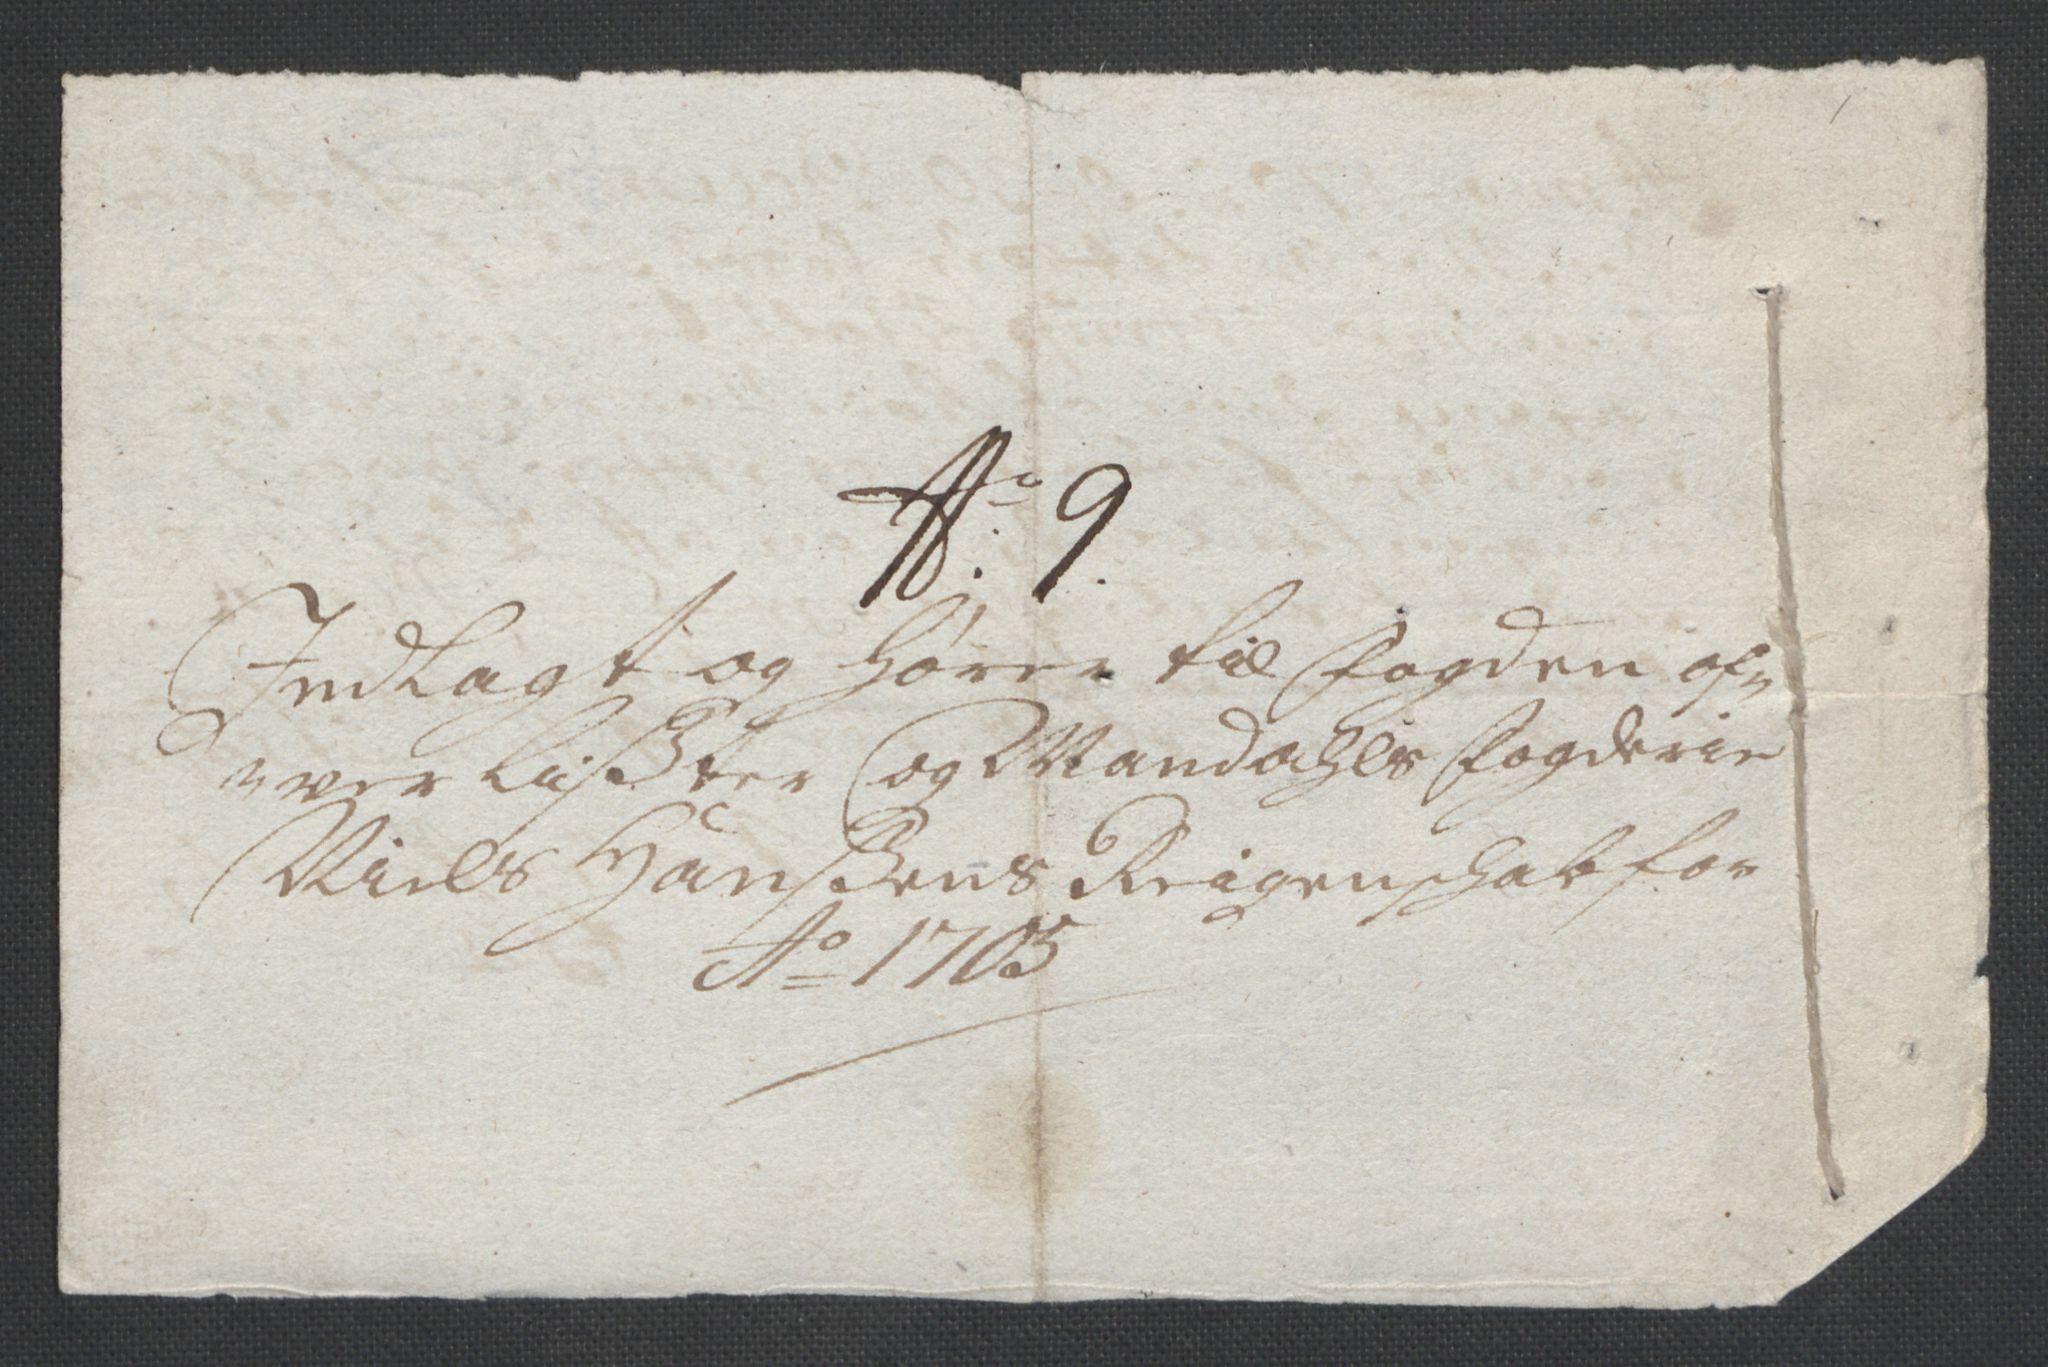 No. 9.
Indlagt og hører til fogden of¬
¬ver Lister og Mandahls fogderie
Niels Hansens Reigenschab for
Ao 1705